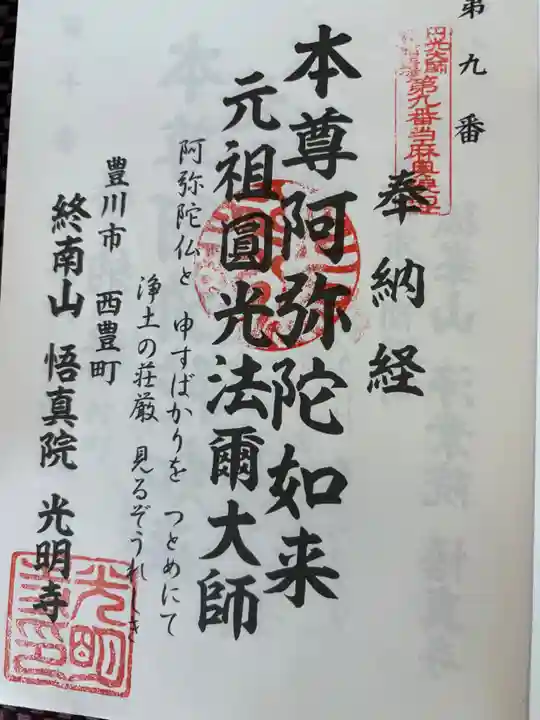 第九番
円光大師
第九番当麻奥院
奉納経
本尊阿弥陀如来
元祖圓光法爾大師
阿弥陀仏と 申すばかりを つとめにて
浄土の荘厳 見るぞうれしき
豊川市 西豊町
終南山 悟真院 光明寺
光明寺印